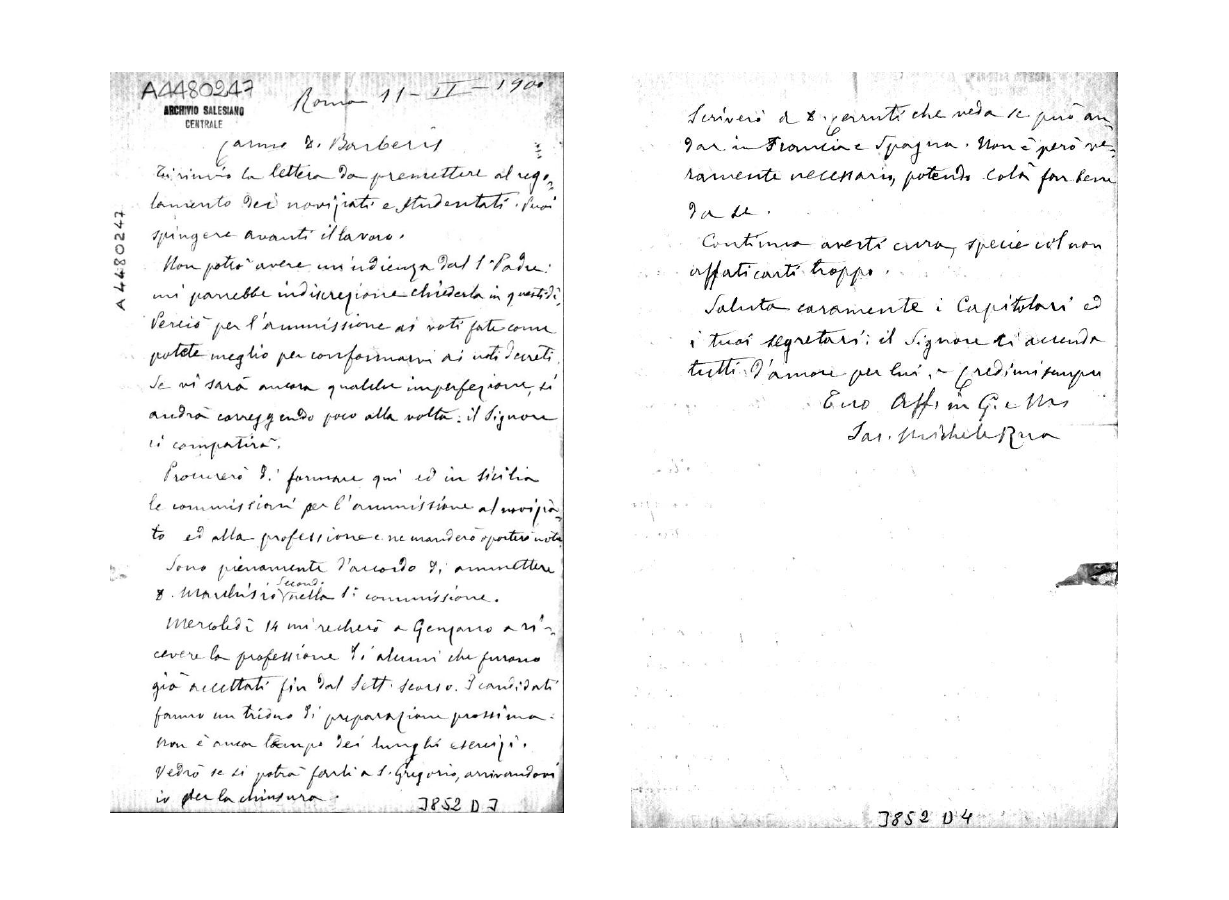 A4480247
ARCHIVIO SALESIANO
CENTRALE
Roma 11 - II - 1900
Carmo D. Barberis
Ti rinvio la lettera da premettere al rego-
lamento dei noviziati e studentati. Puoi
spingere avanti il lavoro.
Non potrò avere un'udienza dal S. Padre:
mi parrebbe indiscrezione chiederla in questi dì.
Perciò per l'ammissione ai voti fate come
potete meglio per conformarvi ai noti decreti.
Se vi sarà ancora qualche imperfezione, si
andrà correggendo poco alla volta: il Signore
ci compatirà.
Procurerò di formare qui ed in Sicilia
le commissioni per l'ammissione al novizia-
to ed alla professione e ne manderò a
Sono pienamente d'accordo di ammettere
D. Marchisio Secondo nella S. commissione.
Mercoledì 14 mi recherò a Genzano a ri-
cevere la professione di alcuni che furono
già accettati fin dal Sett. scorso. I candidati
fanno un triduo di preparazione prossima:
non è ancor tempo dei lunghi esercizi.
Vedrò se si potrà farli a S. Gregorio, arrivandovi
io per la chiusura.
J852 D 3
A4480247
Scriverò a D. Cerruti che veda se può an-
dar in Francia e Spagna. Non è però ve-
ramente necessario, potendo colà far bene
da se.
Continua averti cura, specie col non
affaticarti troppo.
Saluta caramente i Capitolari ed
i tuoi segretari: il Signore ci accenda
tutti d'amore per lui, e credimi sempre
Tuo Aff. in G. e M.
Sac. Michele Rua
J852 D 4